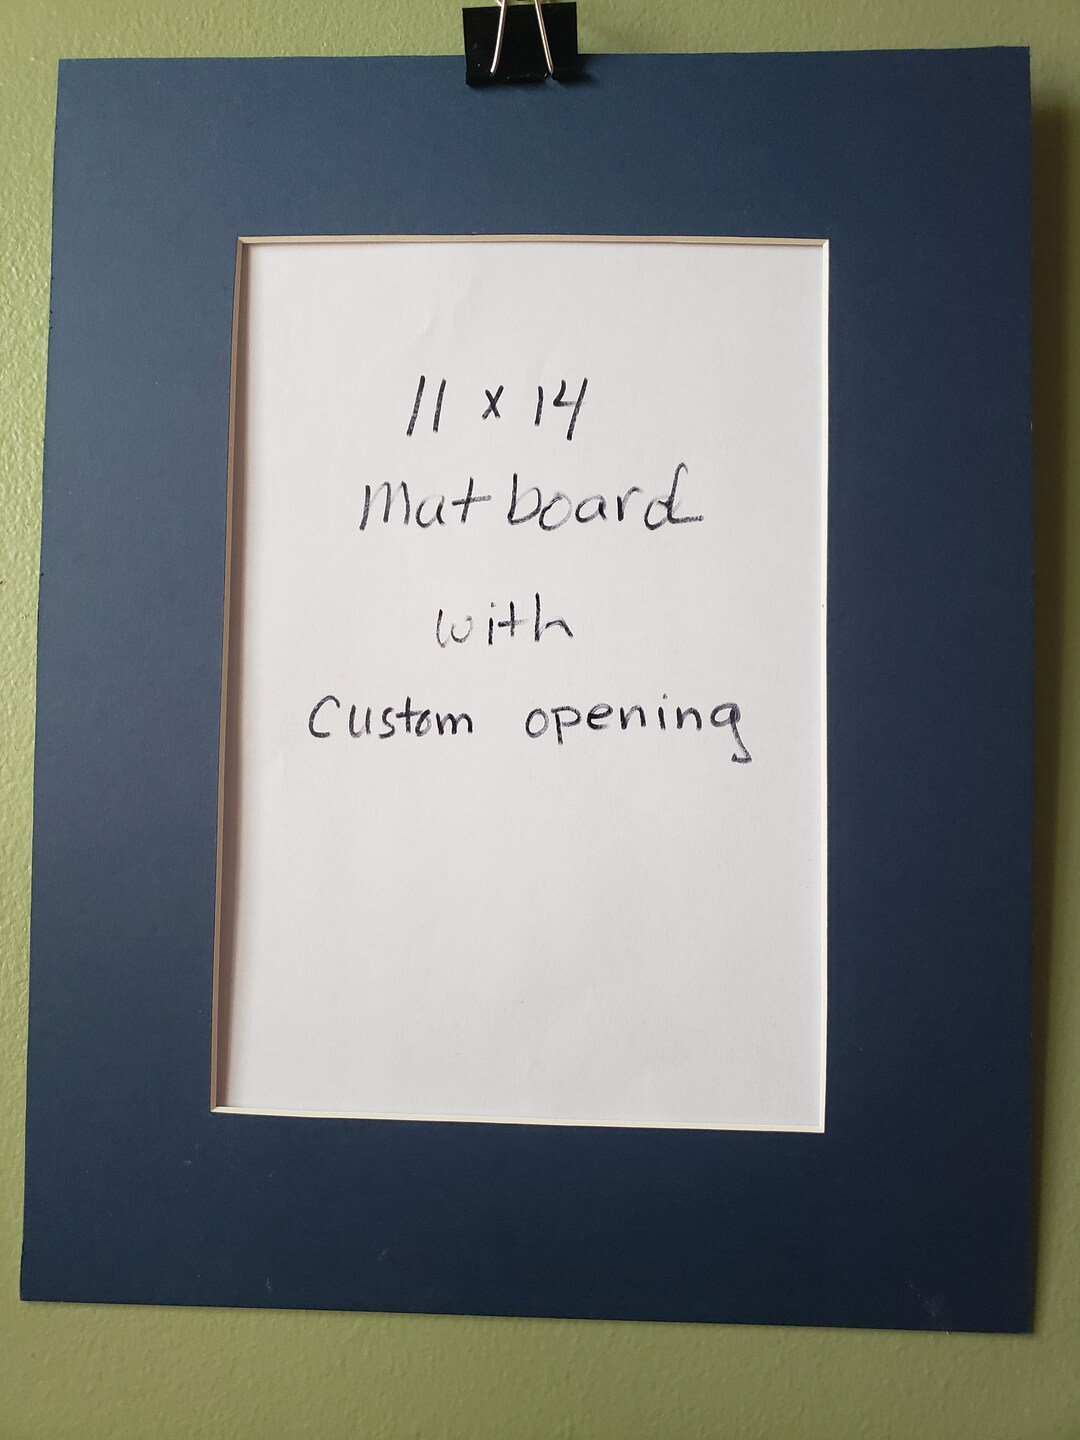 11 x 14
Mat board
with
Custom opening